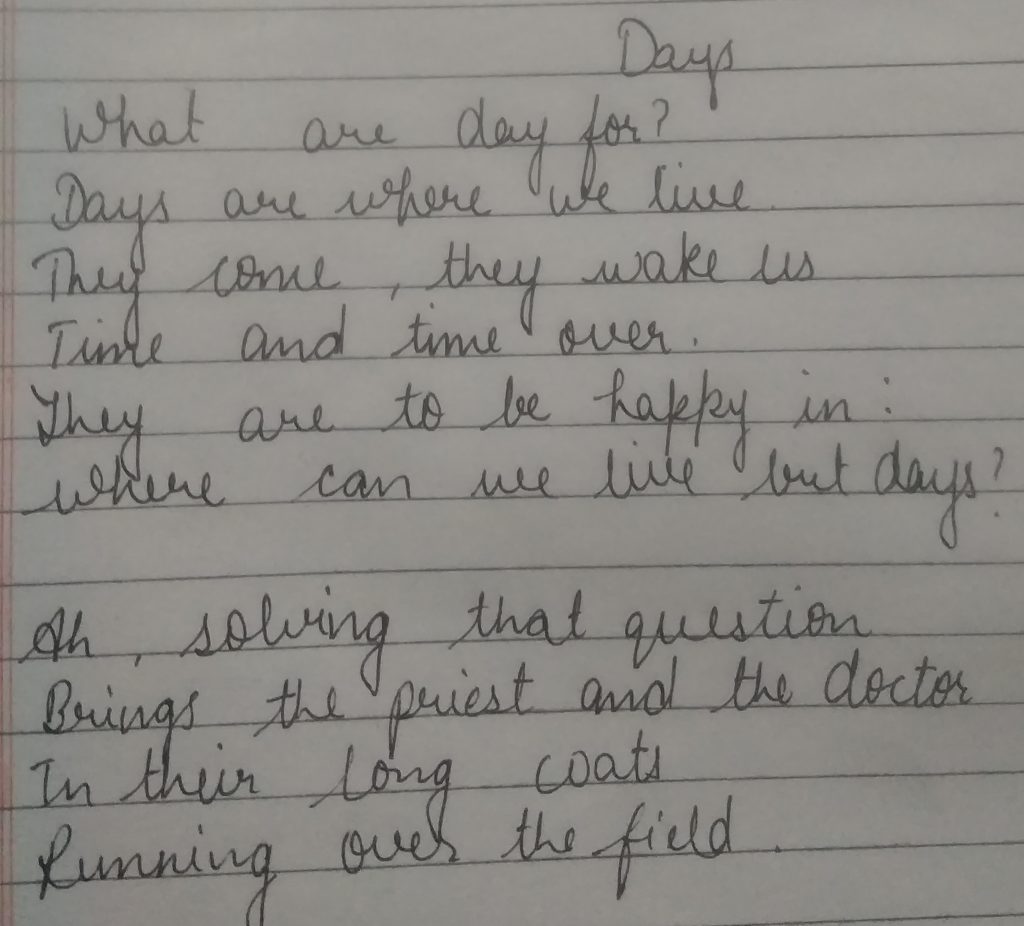 Days
What are day for?
Days are where we live.
They come, they wake us
Time and time over.
They are to be happy in:
where can we live but days?
Ah, solving that question
Brings the priest and the doctor
In their long coats
Running over the field.